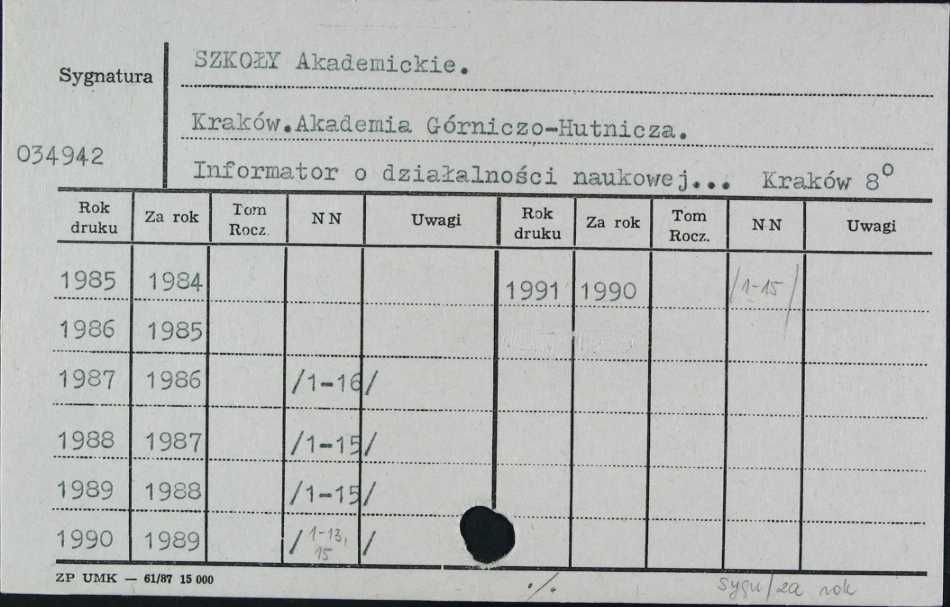 SZKOŁY Akademickie.
Sygnatura
Kraków.Akademia Górniczo-Hutnicza.
034942
Informator o działalności naukowej... Kraków 8°
Rok druku Za rok Tom Rocz. NN Uwagi Rok druku Za rok Tom Rocz. NN Uwagi
1985 1984 1991 1990 /1-15/
1986 1985
1987 1986 /1-16/
1988 1987 /1-15/
1989 1988 /1-15/
1990 1989 /1-13, 15/
ZP UMK — 61/87 15 000
·/. sygn/za rok